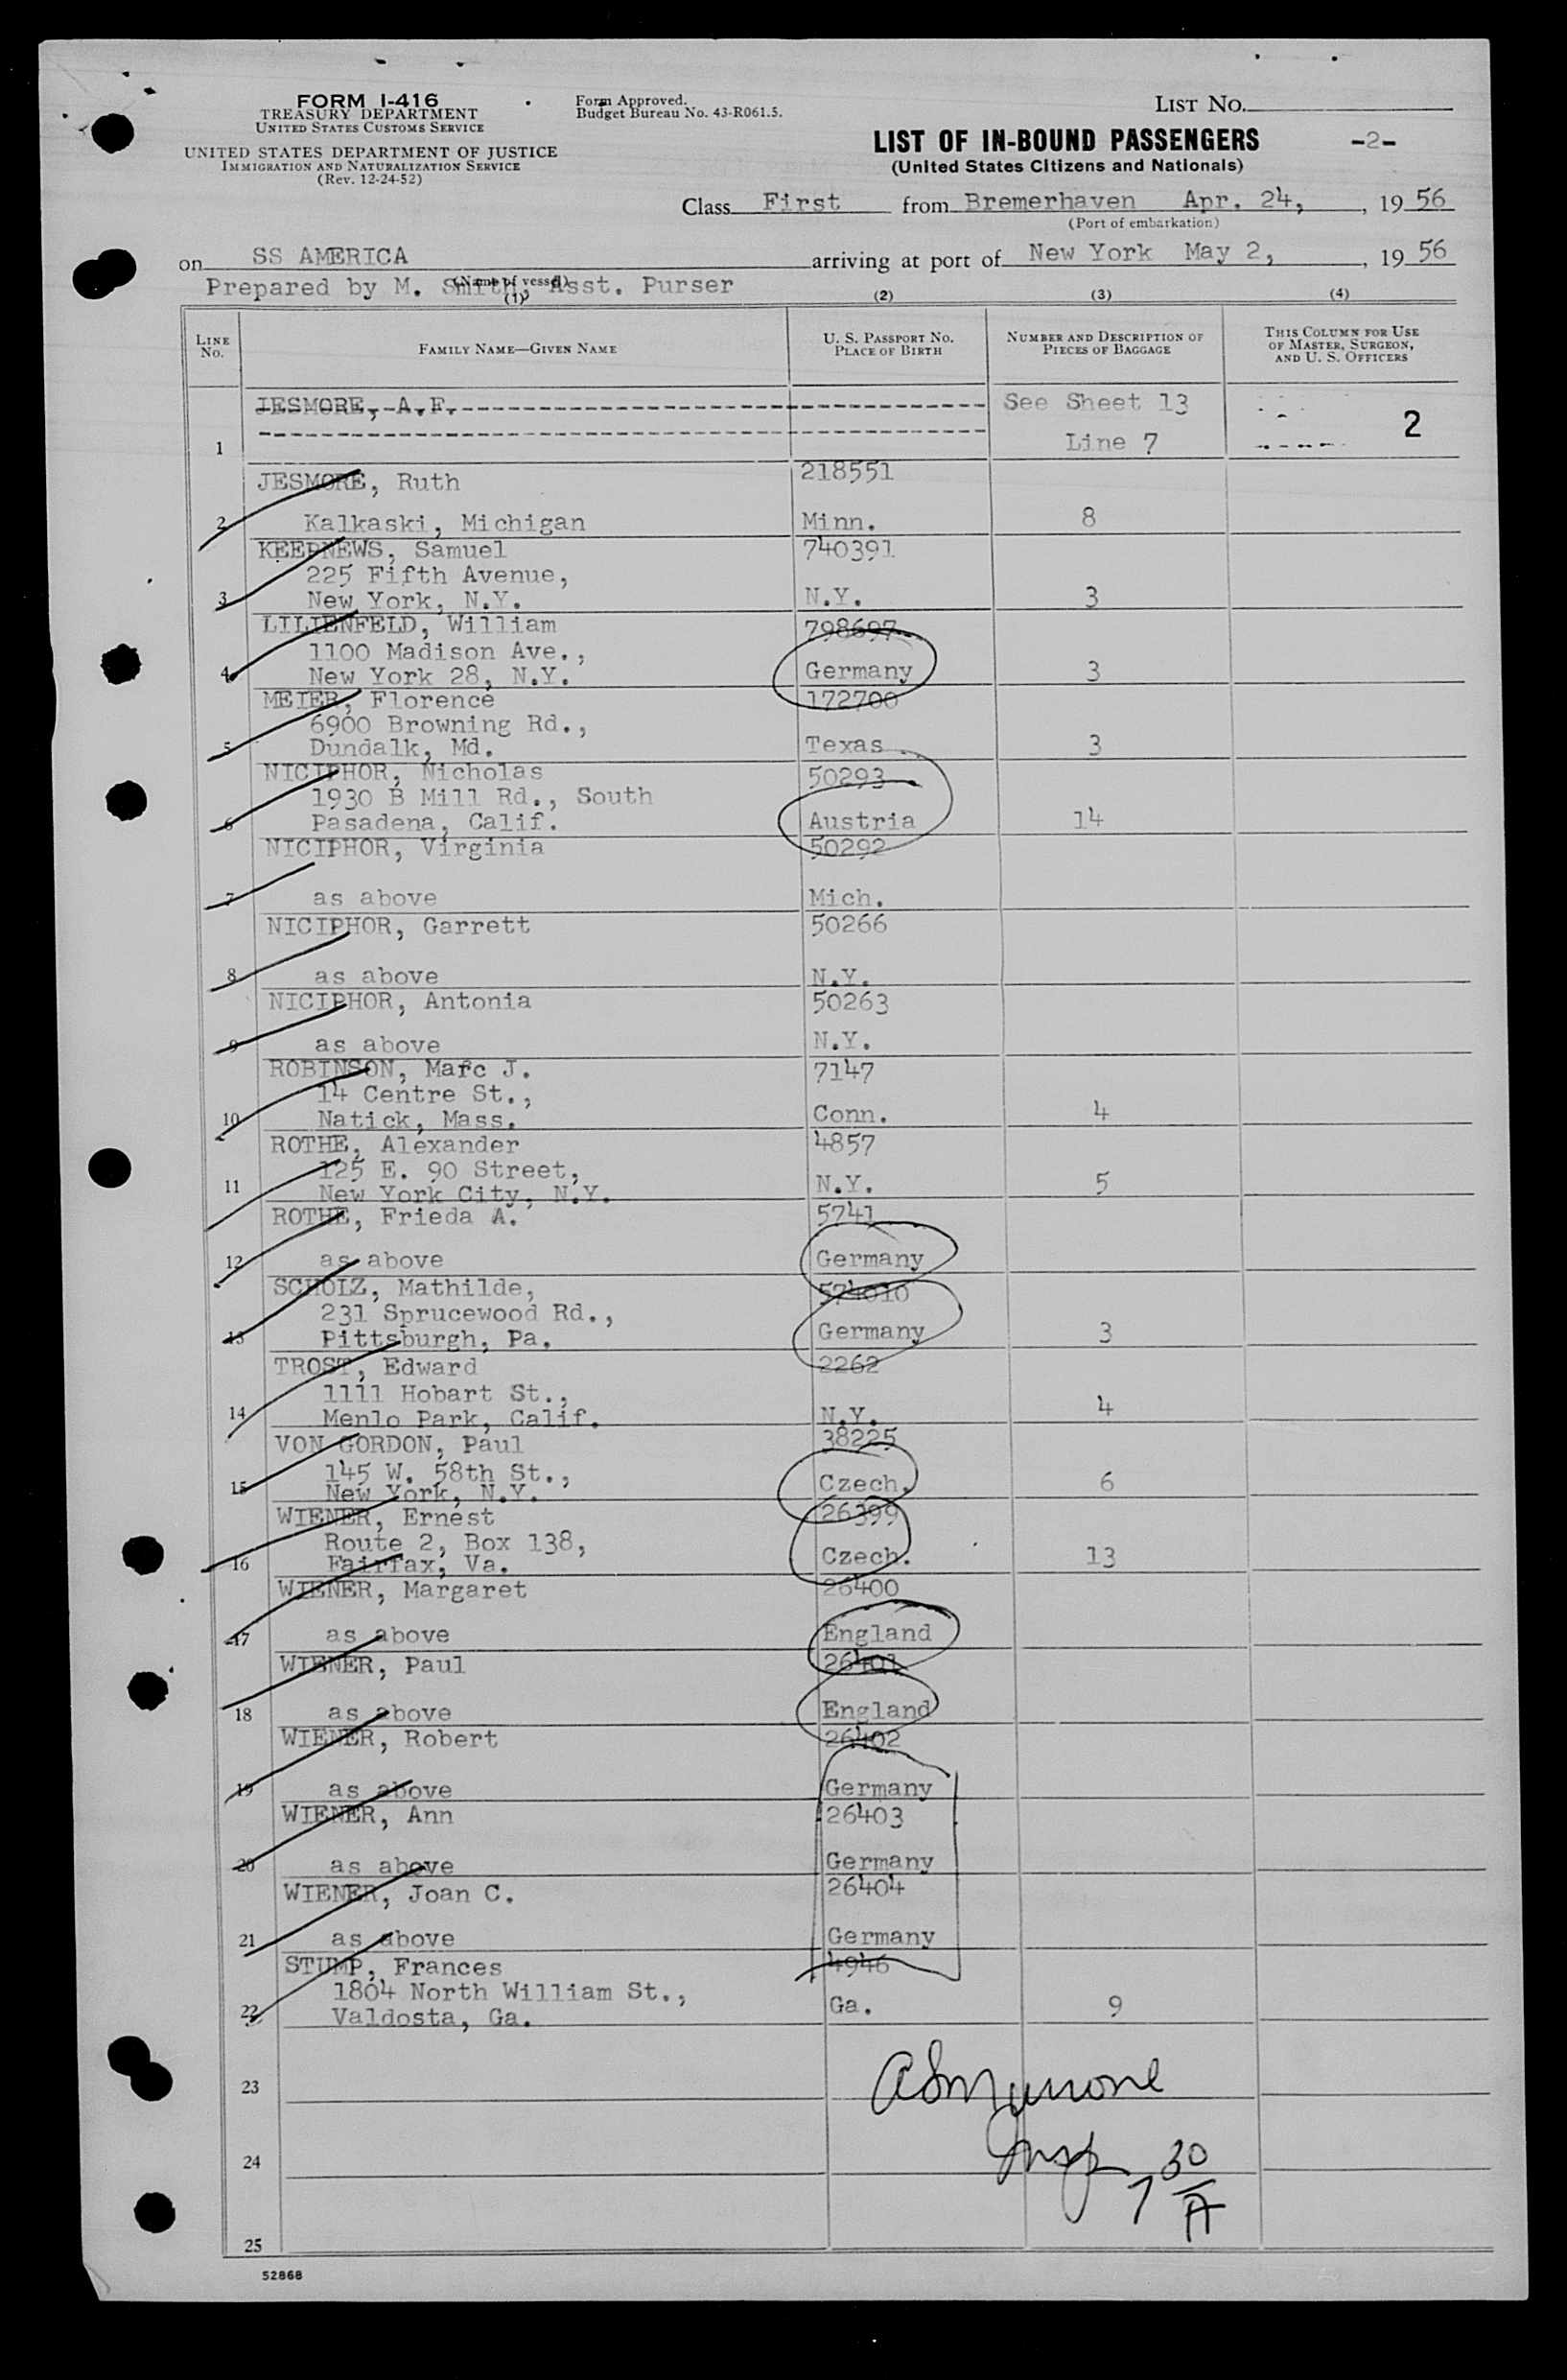 FORM I-416
TREASURY DEPARTMENT
UNITED STATES CUSTOMS SERVICE
UNITED STATES DEPARTMENT OF JUSTICE
IMMIGRATION AND NATURALIZATION SERVICE
(Rev. 12-24-52)
Form Approved.
Budget Bureau No. 43-R061.5.
LIST NO.
LIST OF IN-BOUND PASSENGERS -2-
(United States Citizens and Nationals)
Class First from Bremerhaven Apr. 24, , 19 56
(Port of embarkation)
on SS AMERICA arriving at port of New York May 2, , 19 56
(Name of vessel)
Prepared by M. Smith, Asst. Purser
(1) (2) (3) (4)
LINE NO. FAMILY NAME—GIVEN NAME U. S. PASSPORT NO. PLACE OF BIRTH NUMBER AND DESCRIPTION OF PIECES OF BAGGAGE THIS COLUMN FOR USE OF MASTER, SURGEON, AND U. S. OFFICERS
JESMORE, A.F. See Sheet 13
1 Line 7 2
JESMORE, Ruth 218551
2 Kalkaski, Michigan Minn. 8
KEEPNEWS, Samuel 740391
225 Fifth Avenue,
3 New York, N.Y. N.Y. 3
LILIENFELD, William 798697
1100 Madison Ave.,
4 New York 28, N.Y. Germany 3
MEIER, Florence 172700
6900 Browning Rd.,
5 Dundalk, Md. Texas 3
NICIPHOR, Nicholas 50293
1930 B Mill Rd., South
6 Pasadena, Calif. Austria 14
NICIPHOR, Virginia 50292
7 as above Mich.
NICIPHOR, Garrett 50266
8 as above N.Y.
NICIPHOR, Antonia 50263
9 as above N.Y.
ROBINSON, Marc J. 7147
14 Centre St.,
10 Natick, Mass. Conn. 4
ROTHE, Alexander 4857
125 E. 90 Street,
11 New York City, N.Y. N.Y. 5
ROTHE, Frieda A. 5741
12 as above Germany
SCHOLZ, Mathilde, 574010
231 Sprucewood Rd.,
13 Pittsburgh, Pa. Germany 3
TROST, Edward 2262
1111 Hobart St.,
14 Menlo Park, Calif. N.Y. 4
VON GORDON, Paul 38225
145 W. 58th St.,
15 New York, N.Y. Czech. 6
WIENER, Ernest 26399
Route 2, Box 138,
16 Fairfax, Va. Czech. 13
WIENER, Margaret 26400
17 as above England
WIENER, Paul 26401
18 as above England
WIENER, Robert 26402
19 as above Germany
WIENER, Ann 26403
20 as above Germany
WIENER, Joan C. 26404
21 as above Germany
STUMP, Frances 4946
1804 North William St.,
22 Valdosta, Ga. Ga. 9
23
24 Insp 7 30
A
25
52868